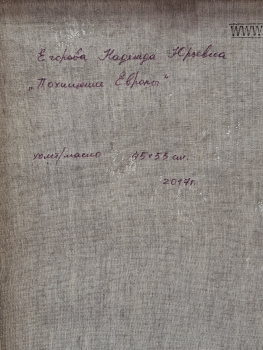 WWW
Егорова Надежда Юрьевна
„Похищение Европы"
холст/масло 45×55 см.
2017г.